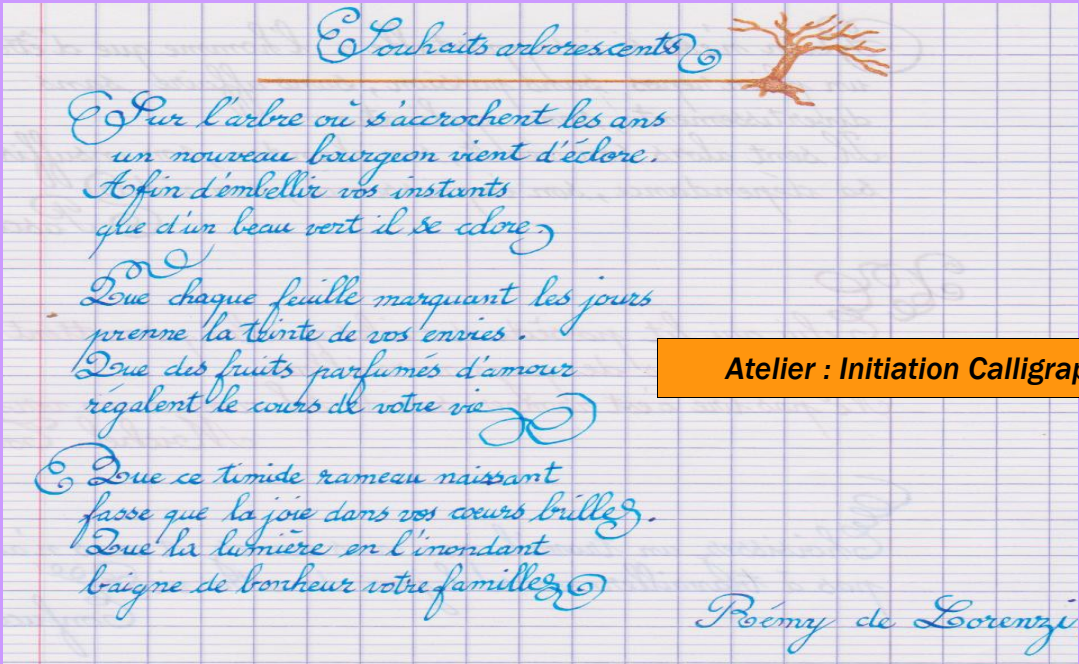 Souhaits arborescents
Sur l'arbre où s'accrochent les ans
un nouveau bourgeon vient d'éclore.
Afin d'embellir vos instants
que d'un beau vert il se colore.
Que chaque feuille marquant les jours
prenne la teinte de vos envies.
Que des fruits parfumés d'amour
régalent le cours de votre vie
Atelier : Initiation Calligrap
Que ce timide rameau naissant
fasse que la joie dans vos coeurs brille.
Que la lumière en l'inondant
baigne de bonheur votre famille
Rémy de Lorenzi